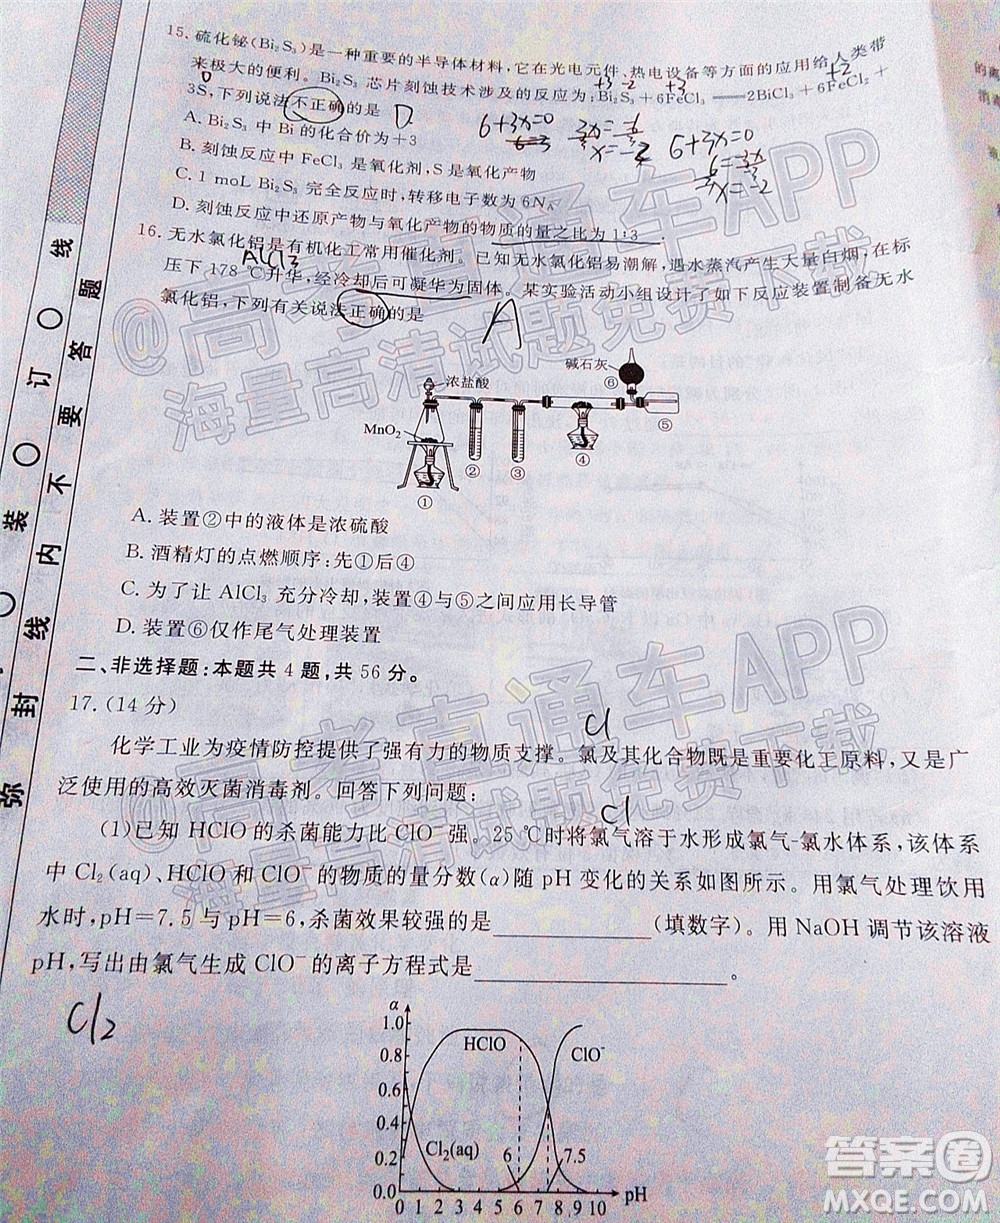 15. 硫化铋(Bi₂S₃)是一种重要的半导体材料,它在光电元件、热电设备等方面的应用给人类带
来极大的便利。Bi₂S₃ 芯片刻蚀技术涉及的反应为:Bi₂S₃+6FeCl₃══2BiCl₃+6FeCl₂+
3S,下列说法不正确的是 D
A. Bi₂S₃ 中 Bi 的化合价为+3
B. 刻蚀反应中 FeCl₃ 是氧化剂,S 是氧化产物
C. 1 moL Bi₂S₃ 完全反应时,转移电子数为 6Nₐ
D. 刻蚀反应中还原产物与氧化产物的物质的量之比为 1:3
0
+3 -2
+2
6+3x=0
6+3x=0
16. 无水氯化铝是有机化工常用催化剂。已知无水氯化铝易潮解,遇水蒸汽产生大量白烟,在标
AlCl3
压下 178 ℃升华,经冷却后可凝华为固体。某实验活动小组设计了如下反应装置制备无水
氯化铝,下列有关说法正确的是
A
浓盐酸
MnO₂
碱石灰
①
②
③
④
⑤
⑥
A. 装置②中的液体是浓硫酸
B. 酒精灯的点燃顺序:先①后④
C. 为了让 AlCl₃ 充分冷却,装置④与⑤之间应用长导管
D. 装置⑥仅作尾气处理装置
二、非选择题:本题共 4 题,共 56 分。
17. (14 分)
Cl
化学工业为疫情防控提供了强有力的物质支撑。氯及其化合物既是重要化工原料,又是广
泛使用的高效灭菌消毒剂。回答下列问题:
Cl
(1)已知 HClO 的杀菌能力比 ClO⁻强。25 ℃时将氯气溶于水形成氯气-氯水体系,该体系
中 Cl₂(aq)、HClO 和 ClO⁻的物质的量分数(α)随 pH 变化的关系如图所示。用氯气处理饮用
水时,pH=7.5 与 pH=6,杀菌效果较强的是__________(填数字)。用 NaOH 调节该溶液
pH,写出由氯气生成 ClO⁻的离子方程式是__________。
Cl2
α
1.0
0.8
0.6
0.4
0.2
0.0
HClO
ClO⁻
Cl₂(aq)
6
7.5
0 1 2 3 4 5 6 7 8 9 10 pH
弥 封 线 内 不 要 答 题
装 订 线
@高考直通车APP
海量高清试题免费下载
@高考直通车APP
海量高清试题免费下载
答案圈
MXQE.COM